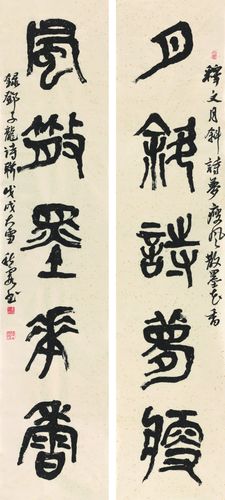 釋文月斜詩夢瘦風散墨花香
月斜詩夢瘦
風散墨華香
錄鄧子龍詩聯戊戌大雪